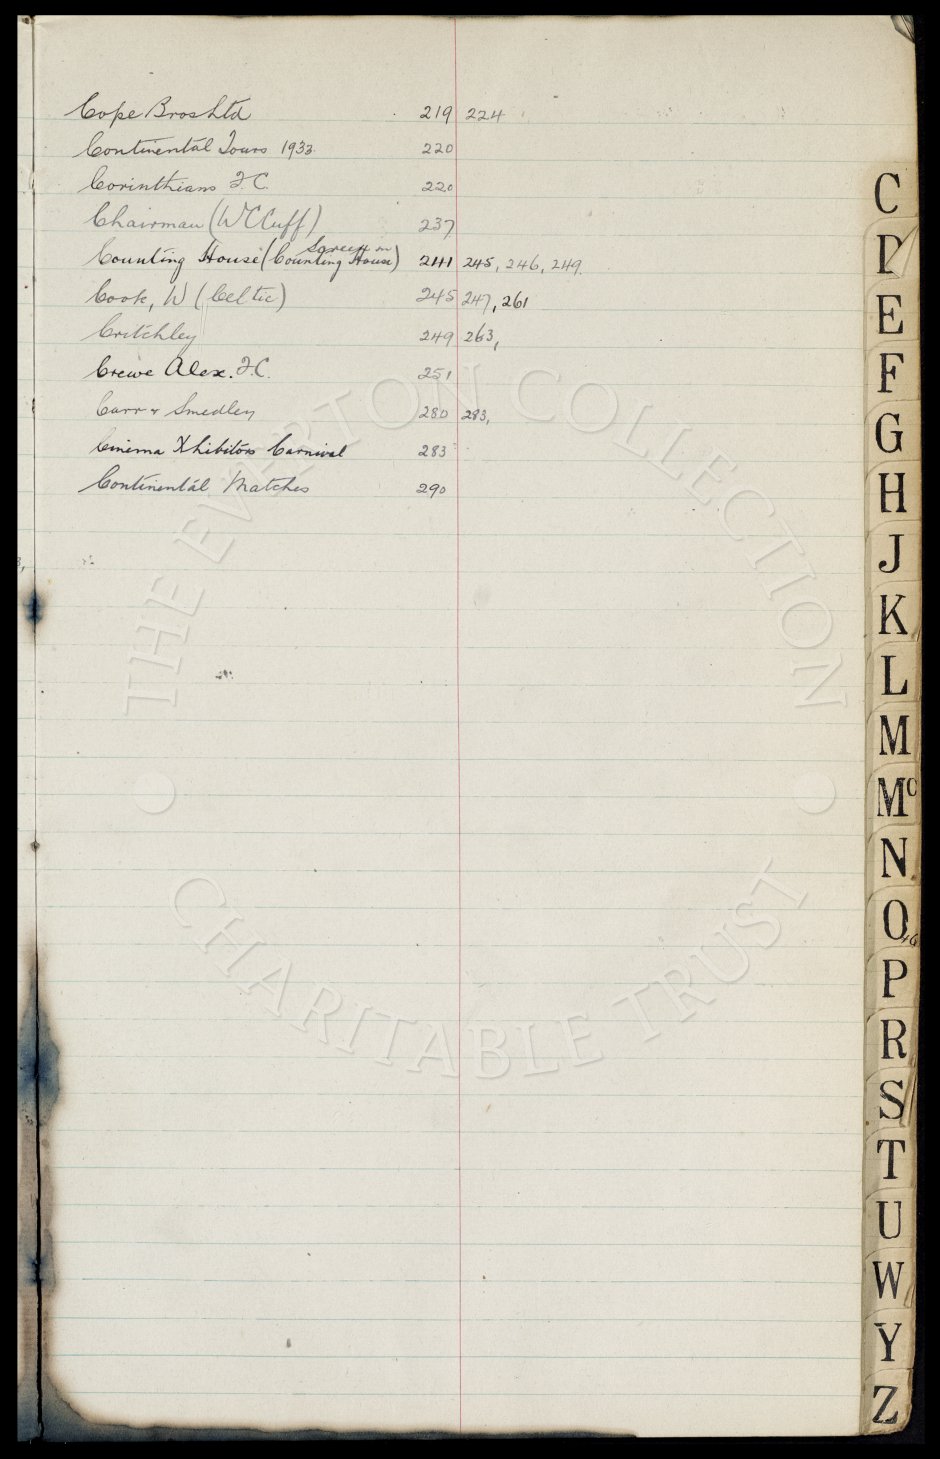 Cope Bros Ltd 219 224
Continental Tours 1933 220
Corinthians F.C. 220
Chairman (W C Cuff) 237
Counting House (Screen in Counting House) 241 245, 246, 249.
Cook, W (Celtic) 245 247, 261
Critchley 249 263,
Crewe Alex. F.C. 251
Carr & Smedley 280 283,
Cinema Xhibitors Carnival 283
Continental Matches 290
C
D
E
F
G
H
J
K
L
M
Mc
N
O
P
R
S
T
U
W
Y
Z
THE EVERTON COLLECTION
CHARITABLE TRUST